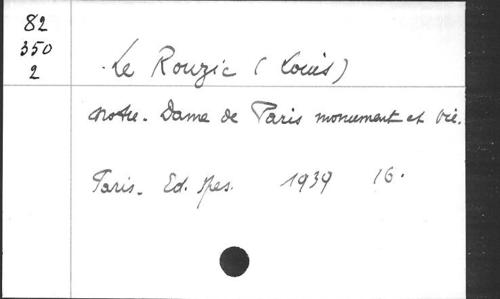 82
350
2
Le Rouzic (Louis)
Notre-Dame de Paris monument et vie.
Paris. Ed. Spes. 1939 16.